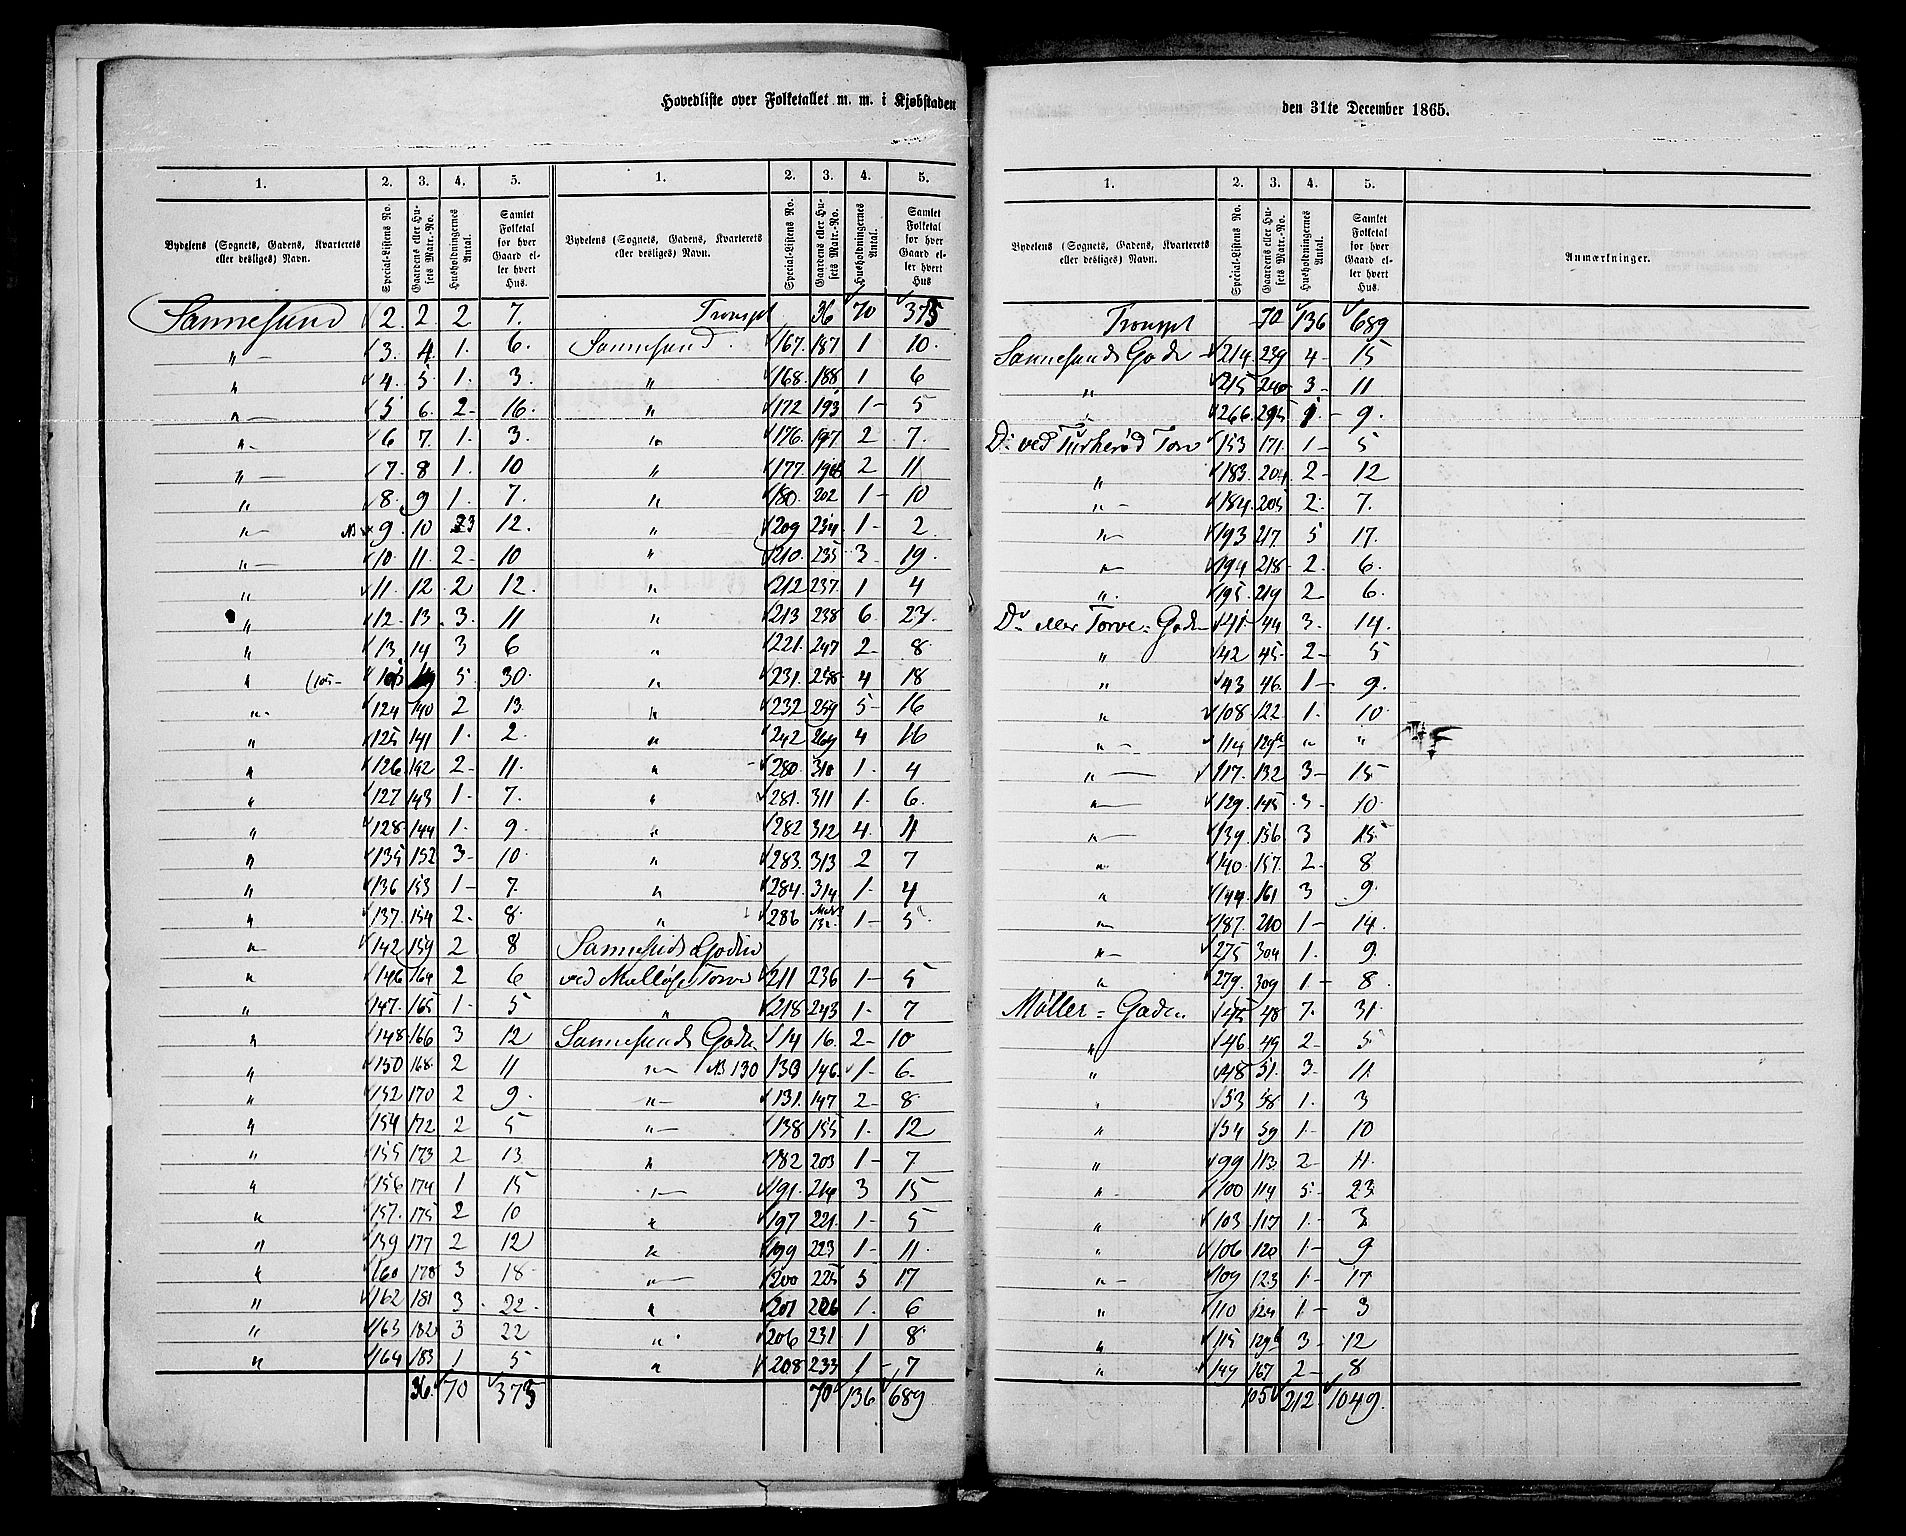 Hovedliste over Folketallet m. m. i Kjøbstaden den 31te December 1865.
1. 2. 3. 4. 5. 1. 2. 3. 4. 5.
Bydelens (Sognets, Gadens, Kvarterets eller desliges) Navn. Special-Listens No. Gaardens eller Husets Matr.-No. Husholdningernes Antal. Samlet Folketal for hver Gaard eller hvert Hus.
Sannesund 2. 2 2 7.
" 3. 4. 1. 6.
" 4. 5 1. 3.
" 5 6. 2 16.
" 6 7. 1. 3.
" 7. 8 1. 10
" 8. 9 1. 7.
" 9. 10 3 12.
" 10. 11. 2 10
" 11. 12. 2 12.
" 12. 13. 3. 11
" 13 14 3 6
" (105 5. 30.
" 124 140 2 13
" 125 141 1. 2.
" 126 142 2 11.
" 127 143 1 7.
" 128 144 1. 9.
" 135 152 3 10.
" 136 153 1 7.
" 137. 154 2. 8.
" 142 159 2 8
" 146 164 2 6
" 147. 165 1. 5
" 148 166 3 12
" 150 168. 2 11
" 152 170 2 9.
" 154 172 2 5
" 155 173 2 13
" 156 174 1 15
" 157. 175 2 10
" 159 177 2 12
" 160 178 3 18
" 162 181 3. 22.
" 163 182 3 22
" 164 183 1 5
36. 70 375
Bydelens (Sognets, Gadens, Kvarterets eller desliges) Navn. Special-Listens No. Gaardens eller Husets Matr.-No. Husholdningernes Antal. Samlet Folketal for hver Gaard eller hvert Hus
Transpt 36 70 375
Sannesund. 167. 187 1 10.
" 168. 188 1 6
" 172 193 1 5
" 176. 197 2 7.
" 177. 198 2 11
" 180. 202 1 10
" 209 234. 1 2
" 210. 235 3 19.
" 212 237. 1 4
" 213 238 6. 27.
" 221. 247 2 8
" 231. 258 4 18
" 232 259 5 16
" 242 269 4 16
" 280. 310 1. 4
" 281. 311 1. 6.
" 282 312 4. 11
" 283. 313 2 7
" 284. 314 1. 4
" 286 Matr. 132. 1 5
Sannesunds Gaden
ved Mølløse Torve 211 236 1 5
" 218 243 1 7
Sannesunds Gaden 14 16. 2 10
" NB 130 130 146. 1 6.
" 131. 147 2 8
" 138 155 1. 12
" 182 203 1 7
" 191. 214 3 15
" 197 221. 1 5
" 199 223 1 11.
" 200 225 5 17
" 201 226 1. 6
" 206 231 1 8
" 208 233 1 7
70 136 689
1. 2. 3. 4. 5.
Bydelens (Sognets, Gadens, Kvarterets eller desliges) Navn. Special-Listens No. Gaardens eller Husets Matr.-No. Husholdningernes Antal. Samlet Folketal for hver Gaard eller hvert Hus Anmærkninger.
Transpt 70 136 689
Sannesunds Gade 214. 239 4 15
" 215 240 3 11
266. 295 1 9.
Do ved Tuskerød Torv 153 171. 1 5
" 183. 204. 2 12
" 184. 205 2. 7.
" 193 217. 5 17.
" 194 218 2. 6.
" 195. 219 2 6.
Do eller Torve-Gaden 41 44 3. 14.
" 42 45 2 5
" 43 46. 1 9.
" 108 122 1. 10
" 114 129a " "
" 117. 132 3 15
" 129. 145 3 10
" 139. 156. 3 15
" 140. 157. 2 8
" 144 161 3 9.
" 187. 210 1 14.
" 275 304 1. 9.
" 279. 309 1 8.
Møller-Gaden 45 48 7. 31.
" 46. 49 2 5
" 48 51. 3 11.
" 53 58 1. 3
" 54 59 1 10
" 99 113 2 11.
" 100 114 5 23
" 103 117 1. 3
" 106 120 1 9
" 109 123 1 17
" 110 124 1 3
" 115 129b 3 12
" 149 167 2 8
105 212 1049.